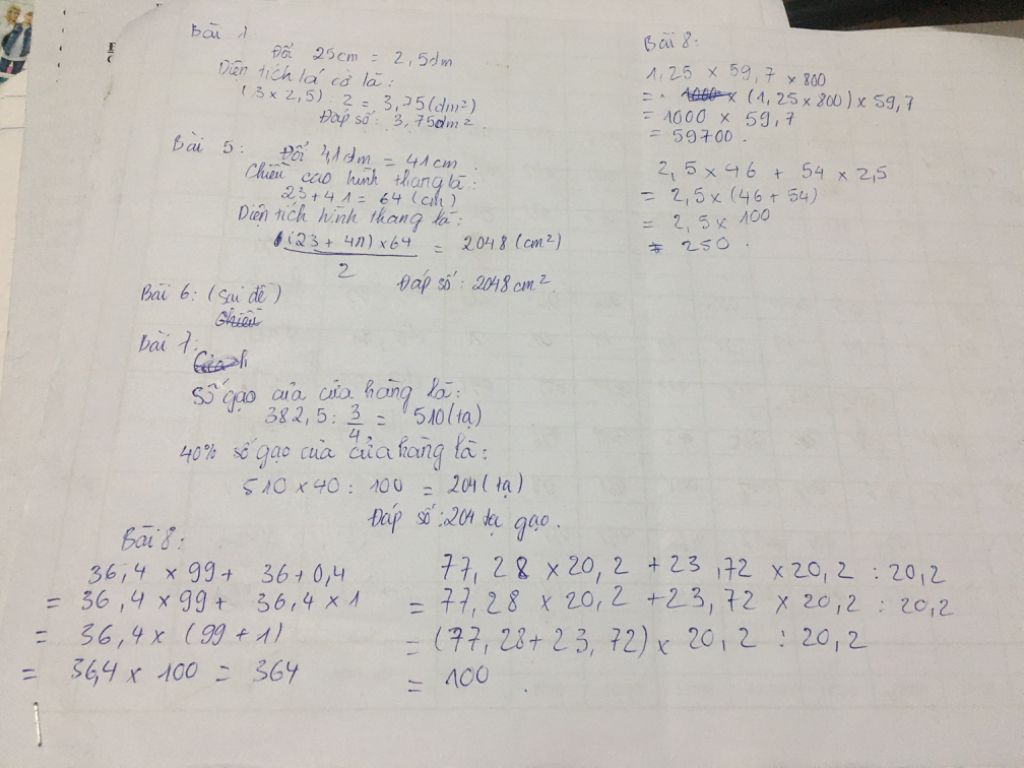 Bài 1
Đổi 25cm = 2,5dm
Diện tích lá cờ là:
(3 x 2,5) : 2 = 3,75 (dm²)
Đáp số: 3,75dm²
Bài 5:
Đổi 4,1dm = 41cm
Chiều cao hình thang là:
23 + 41 = 64 (cm)
Diện tích hình thang là:
(23 + 41) x 64 / 2 = 2048 (cm²)
Đáp số: 2048cm²
Bài 6: (Sai đề)
Chiều
Bài 7:
Số gạo của cửa hàng là:
382,5 : 3/4 = 510 (tạ)
40% số gạo của cửa hàng là:
510 x 40 : 100 = 204 (tạ)
Đáp số: 204 tạ gạo.
Bài 8:
36,4 x 99 + 36 + 0,4
= 36,4 x 99 + 36,4 x 1
= 36,4 x (99 + 1)
= 36,4 x 100 = 364
77,28 x 20,2 + 23,72 x 20,2 : 20,2
= 77,28 x 20,2 + 23,72 x 20,2 : 20,2
= (77,28 + 23,72) x 20,2 : 20,2
= 100.
Bài 8:
1,25 x 59,7 x 800
= 1000 x (1,25 x 800) x 59,7
= 1000 x 59,7
= 59700.
2,5 x 46 + 54 x 2,5
= 2,5 x (46 + 54)
= 2,5 x 100
= 250.